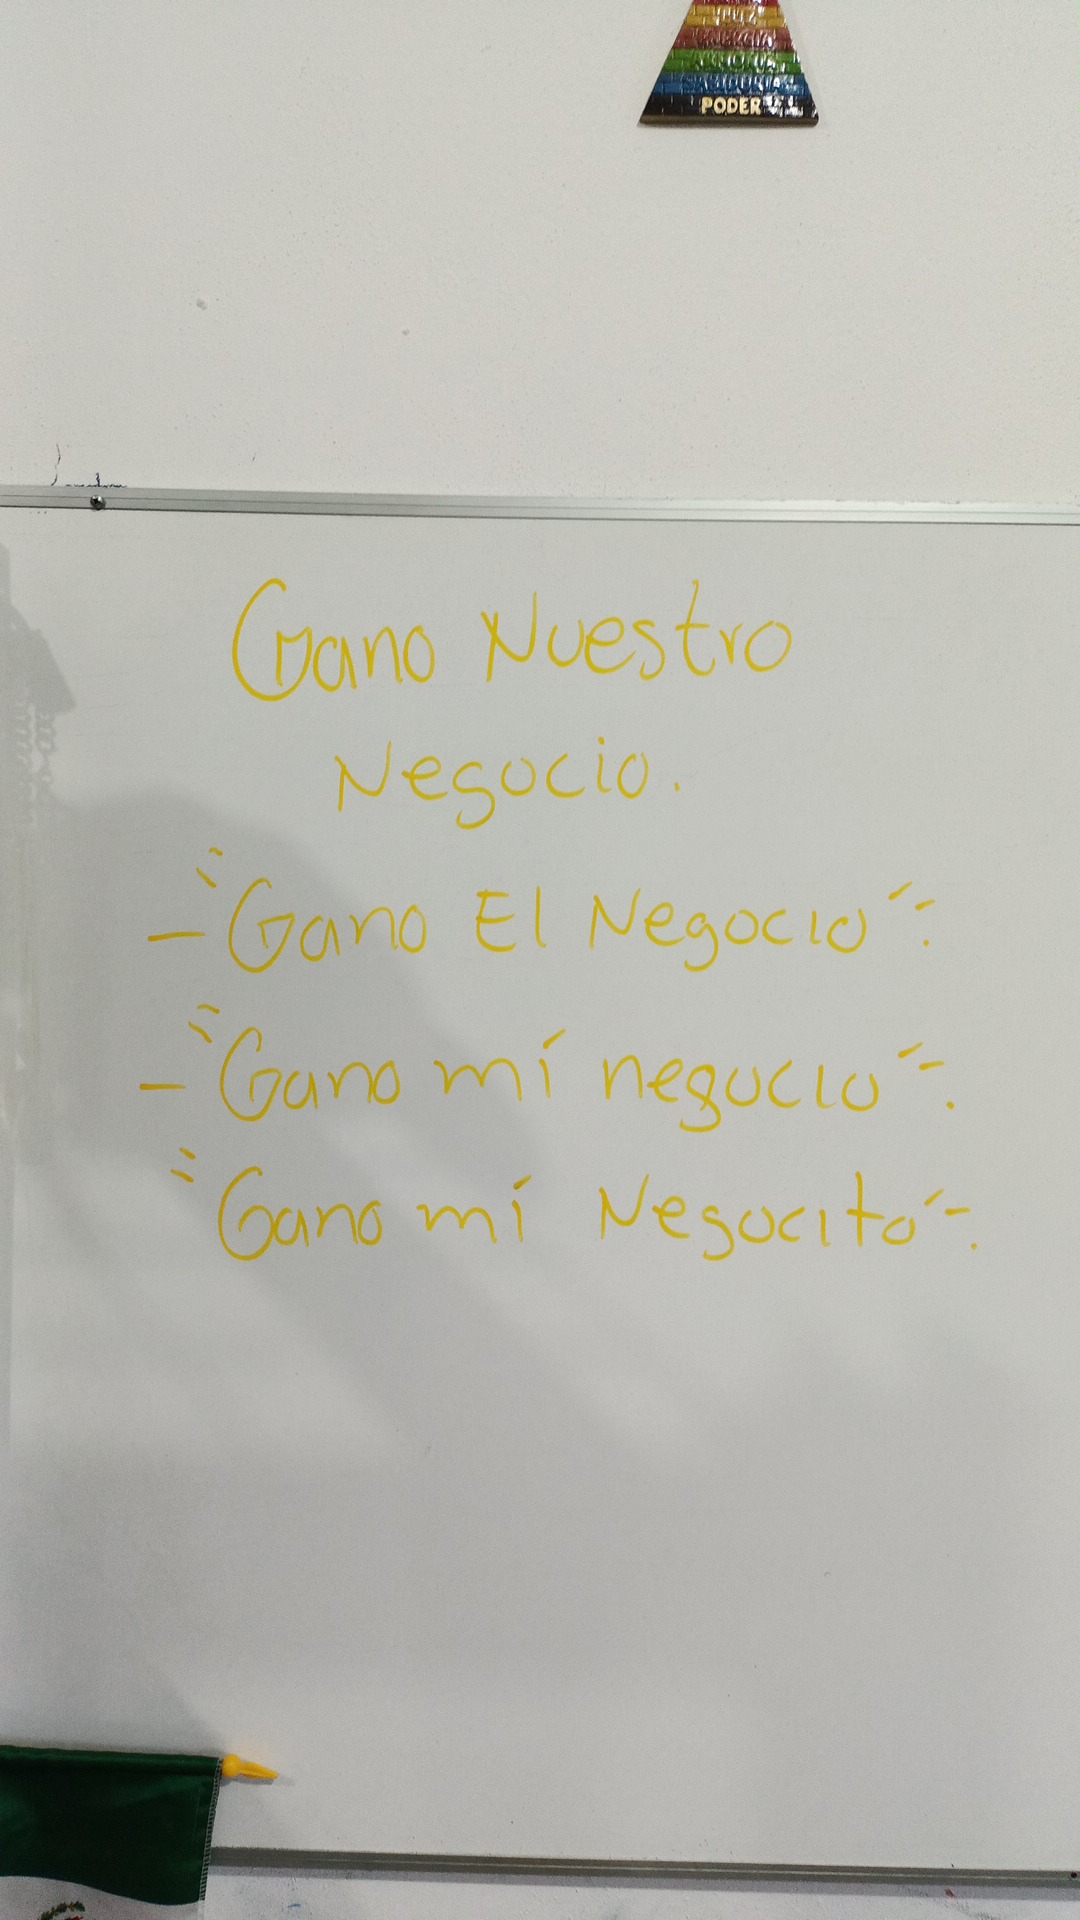 PODER
Gano Nuestro
Negocio.
- "Gano El Negocio".
- "Gano mí negocio".
"Gano mí Negocito".